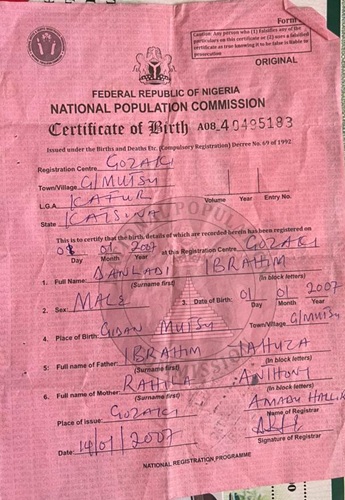 Form
Caution: Any person who (1) Falsifies any of the
particulars on this certificate or (2) uses a falsified
certificate as true knowing it to be false is liable to
prosecution
ORIGINAL
FEDERAL REPUBLIC OF NIGERIA
NATIONAL POPULATION COMMISSION
Certificate of Birth A08 40495183
Issued under the Births and Deaths Etc. (Compulsory Registration) Decree No. 69 of 1992
Registration Centre GOZAKI
Town/Village G/MUTSU
L.G.A KAFUR Volume Year Entry No.
State KATSINA
This is to certify that the birth, details of which are recorded herein has been registered on
01 2007 at this Registration Centre GOZAKI
Day Month Year
1. Full Name: DANLADI IBRAHIM
(Surname first) (In block letters)
2. Sex: MALE 3. Date of Birth: 01 01 2007
Day Month Year
4. Place of Birth: GIDAN MUTSU Town/Village G/MUTSU
5. Full name of Father: IBRAHIM
(Surname first) (In block letters)
6. Full name of Mother: RAHILA
(Surname first) (In block letters)
Place of issue: GOZAKI AMADU
Name of Registrar
Date: 14/01/2007
Signature of Registrar
NATIONAL REGISTRATION PROGRAMME